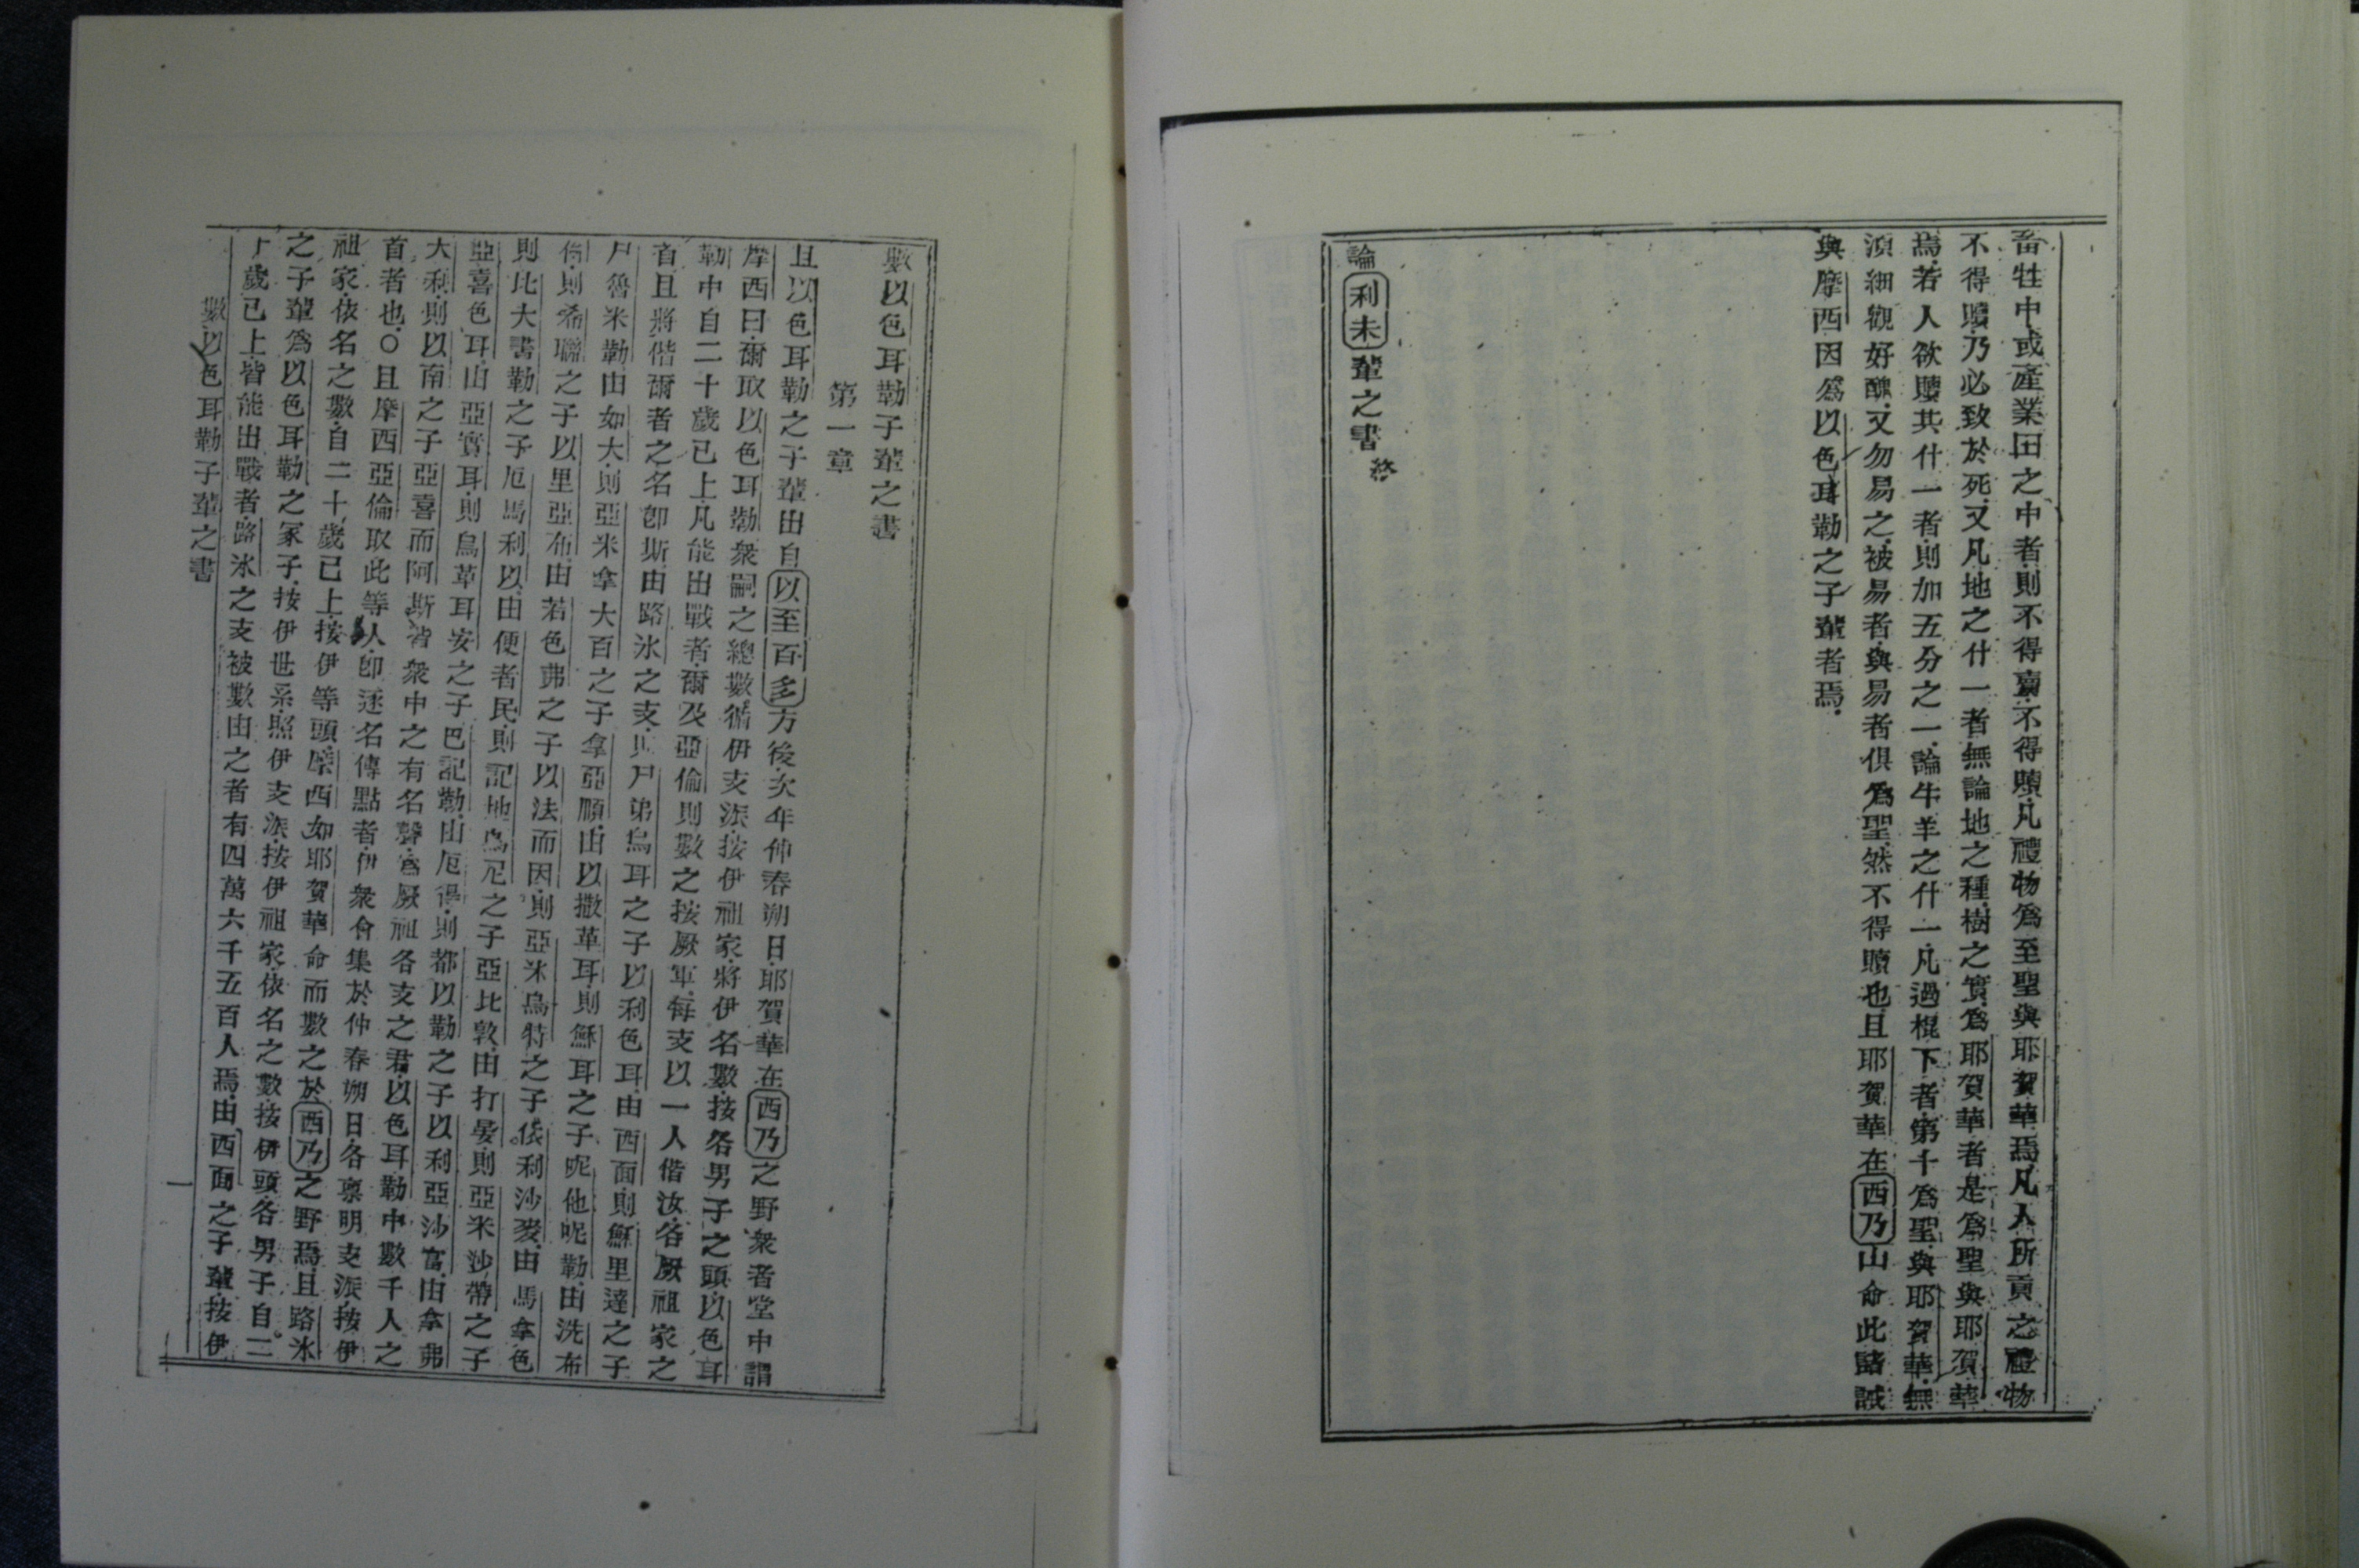 畜牲中或產業田之中者則不得賣不得贖凡禮物爲至聖與耶賀華焉凡人所貢之禮物
不得贖乃必致於死又凡地之什一者無論地之種樹之實爲耶賀華者是爲聖與耶賀華
焉若人欲贖其什一者則加五分之一論牛羊之什一凡過棍下者第十爲聖與耶賀華無
須細觀好醜又勿易之被易者與易者俱爲聖然不得贖也且耶賀華在西乃山命此諸誡
與摩西因爲以色耳勒之子輩者焉
論利未輩之書終
數以色耳勒子輩之書
第一章
且以色耳勒之子輩出自以至百多方後次年仲春朔日耶賀華在西乃之野衆者堂中謂
摩西曰爾取以色耳勒衆嗣之總數循伊支派按伊祖家將伊名數按各男子之頭以色耳
勒中自二十歲已上凡能出戰者爾及亞倫則數之按厥軍每支以一人偕汝各厥祖家之
首且將偕爾者之名卽斯由路氷之支則尸弟烏耳之子以利色耳由西面則穌里達之子
尸魯米勒由如大則亞米拿大百之子拿亞順由以撒革耳則穌耳之子呢他呢勒由洗布
倫則希聯之子以里亞布由若色弗之子以法而因則亞米烏特之子依利沙麥由馬拿色
則比大書勒之子厄馬利以由便者民則記地烏尼之子亞比敦由打晏則亞米沙帶之子
亞喜色耳由亞實耳則烏革耳安之子巴記勒由厄得則都以勒之子以利亞沙富由拿弗
大利則以南之子亞喜而阿斯皆衆中之有名聲爲厥祖各支之君以色耳勒中數千人之
首者也○且摩西亞倫取此等人卽逐名傳點者伊衆會集於仲春朔日各禀明支派按伊
祖家依名之數自二十歲已上按伊等頭摩西如耶賀華命而數之於西乃之野焉且路氷
之子輩爲以色耳勒之冢子按伊世系照伊支派按伊祖家依名之數按伊頭各男子自二
十歲已上皆能出戰者路氷之支被數由之者有四萬六千五百人焉由西面之子輩按伊
數以色耳勒子輩之書
一